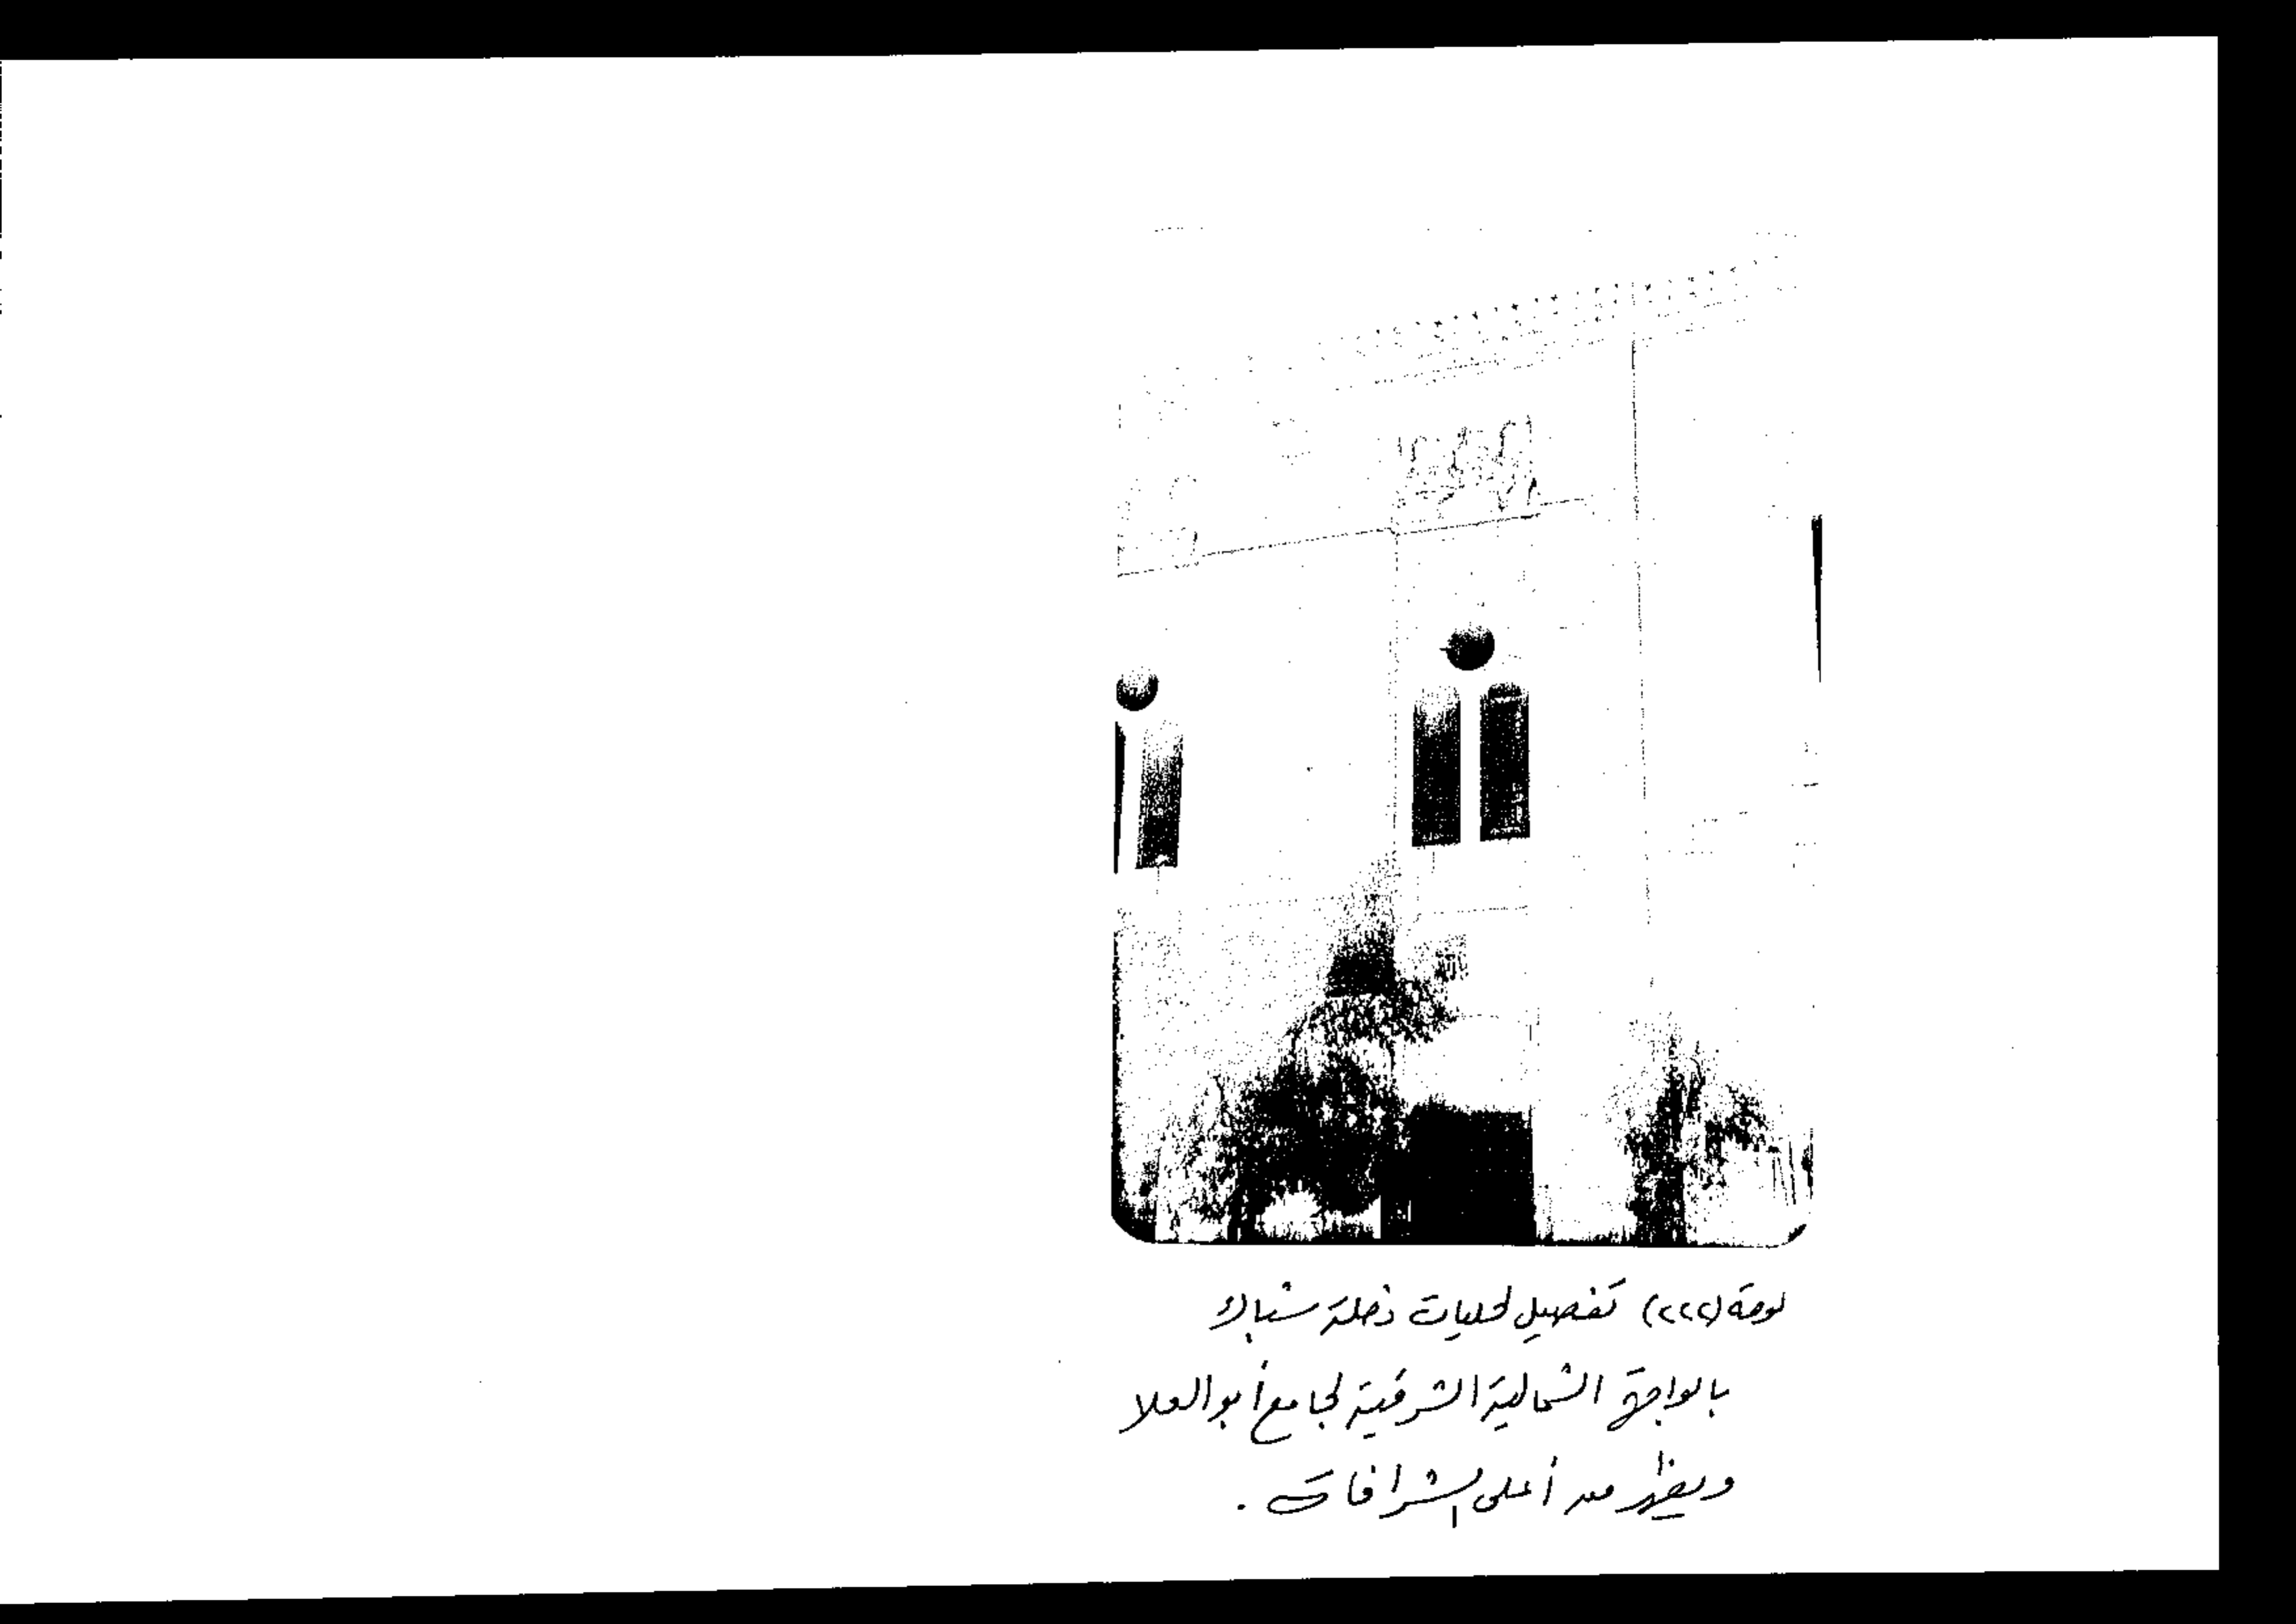 لوحة (٢٢٢) تفصيل لحليات دخلة شباك
بالواجهة الشمالية الشرقية لجامع أبو العلا
ويظهر من أعلى الشرافات .